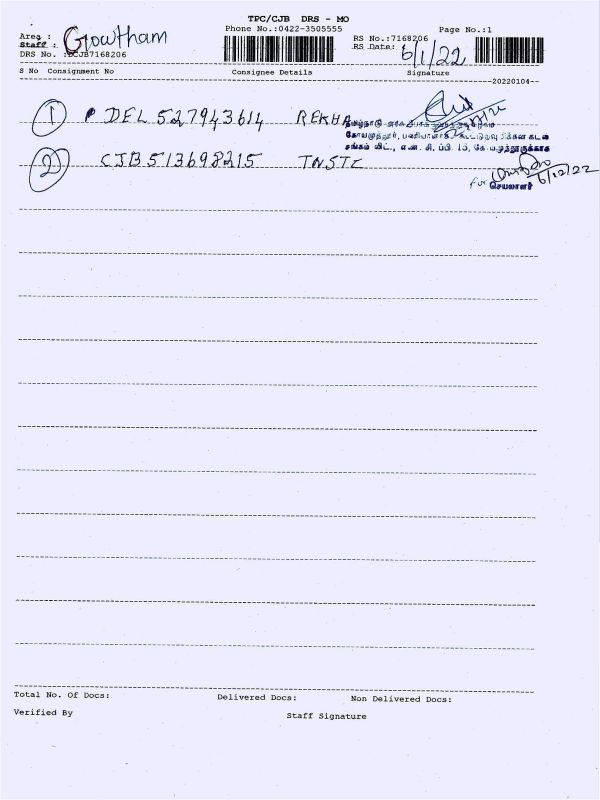 TPC/CJB DRS - MO
Phone No.:0422-3505555
Page No.:1
Area :
Staff : Gowtham
RS No.:7168206
RS Date: 6/1/22
DRS No. :DCJB7168206
S No Consignment No Consignee Details Signature
20220104
1 DEL 527943614 REKHA
கோயமுத்தூர்,
2 CJB 513698215 TNSTC
சங்கம் லிட்., எண். சி. பி.
for 6/12/22
செயலாளர்
Total No. Of Docs: Delivered Docs: Non Delivered Docs:
Verified By Staff Signature